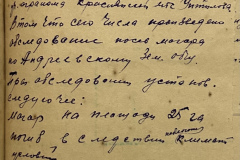 В том что сего числа произведено
обследование посев могара
по Андреевскому Зем. общ.
При обследовании установ.
следующее:
Могар на площади 25 га
погиб в следствии климат